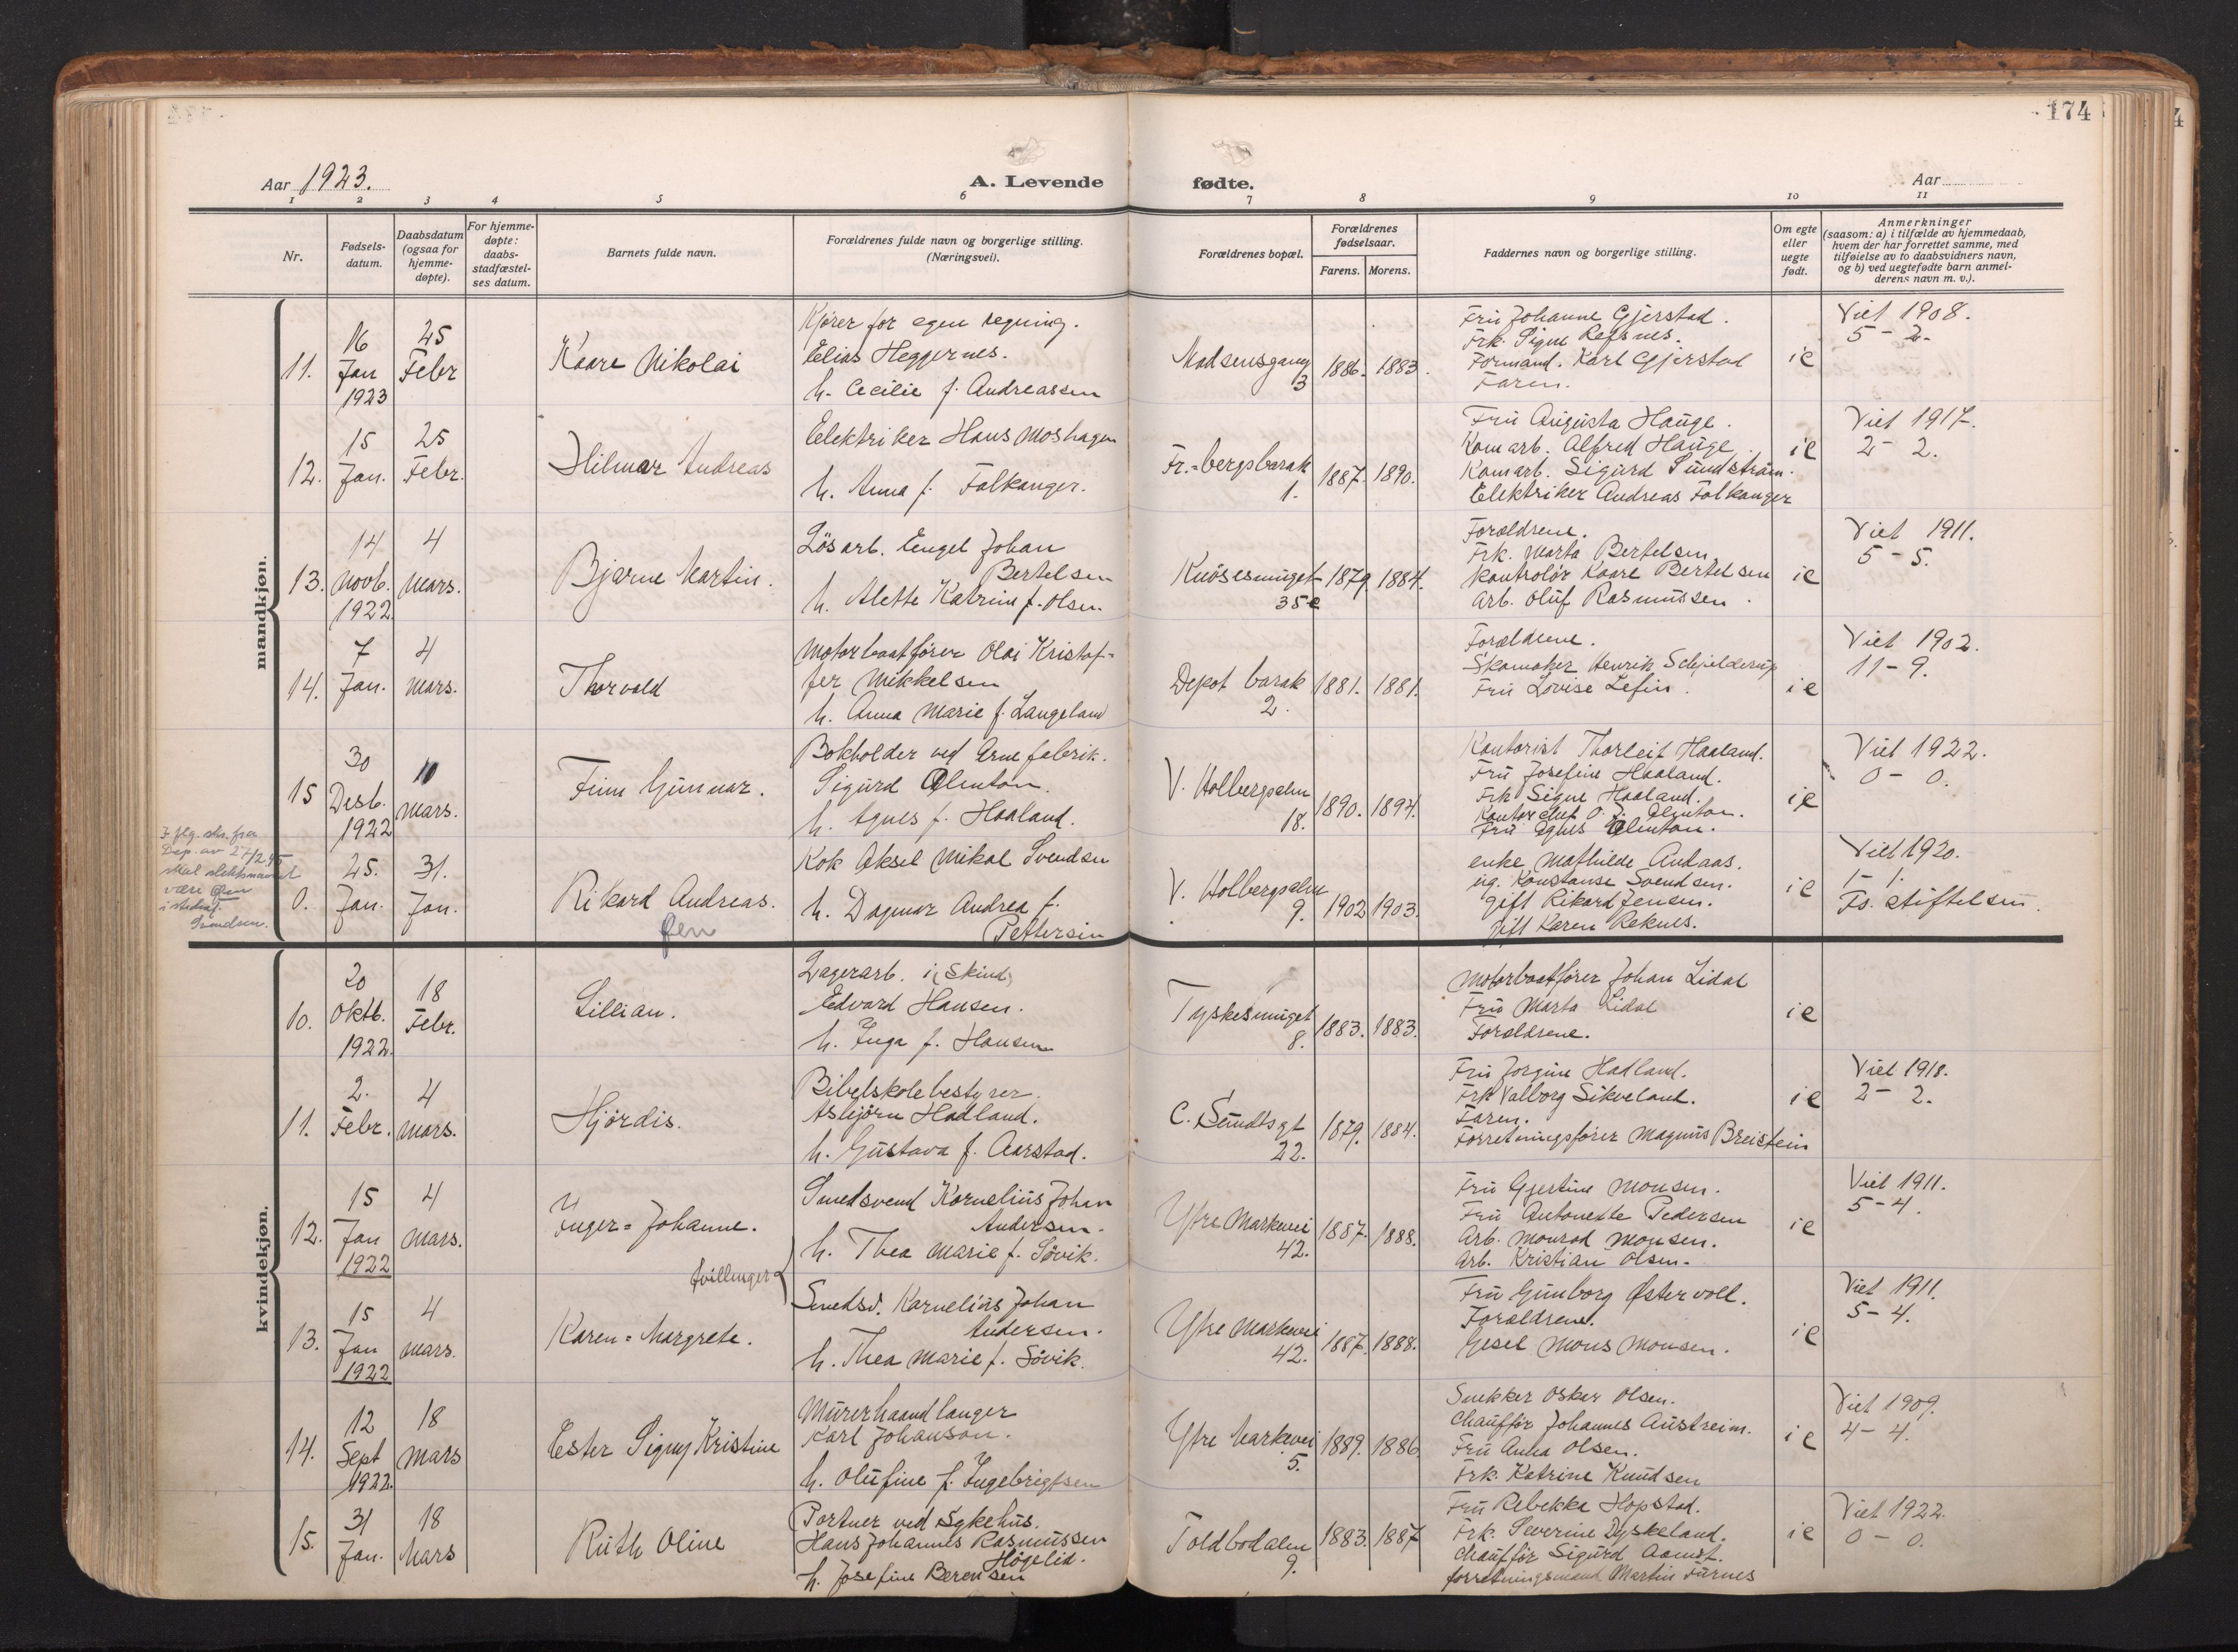 174
Aar 1923.
A. Levende fødte.
Aar
1 2 3 4 5 6 7 8 9 10 11
Nr.
Fødsels-datum.
Daabsdatum (ogsaa for hjemme-døpte).
For hjemme-døpte: daabs-stadfæstel-ses datum.
Barnets fulde navn.
Forældrenes fulde navn og borgerlige stilling. (Næringsvei).
Forældrenes bopæl.
Forældrenes fødselsaar.
Farens. Morens.
Faddernes navn og borgerlige stilling.
Om egte eller uegte født.
Anmerkninger
(saasom: a) i tilfælde av hjemmedaab,
hvem der har forrettet samme, med
tilføielse av to daabsvidners navn,
og b) ved uegtefødte barn anmel-
derens navn m. v.).
mandkjøn.
11.
16 Jan 1923
25 Febr
Kaare Nikolai
Kjører for egen regning.
Elias Heggernes.
h. Cecilie f. Andreassen
Madsensgang 3
1886. 1883.
Fru Johanne Gjerstad.
Frk. Signe Refsnes.
Formand. Karl Gjerstad
Faren.
ie
Viet 1908.
5 - 2.
12.
15 Jan.
25 Febr.
Hilmar Andreas
Elektriker Hans Moshagen
h. Anna f. Falkanger.
Fr.=bergsbarak 1.
1887. 1890.
Fru Augusta Hauge.
Kom arb. Alfred Hauge
Kom arb. Sigurd Sundstrøm.
Elektriker Andreas Falkanger
ie
Viet 1917.
2 - 2.
13.
14 Novb. 1922
4 Mars.
Bjarne Martin.
Løsarb. Engel Johan
Bertelsen
h. Alette Katrine f. Olsen.
Knøsesmuget 35e
1879. 1884.
Forældrene.
Frk. Marta Bertelsen
Kontrolør Kaare Bertelsen
Arb. Oluf Rasmussen.
ie
Viet 1911.
5 - 5.
14.
7 Jan.
4 Mars.
Thorvald
Motorbaatfører Olai Kristof-
fer Mikkelsen
h. Anna Marie f. Langeland
Depot barak 2.
1881. 1881.
Forældrene.
Skomaker Henrik Schjelderup
Fru Lovise Lefin.
ie
Viet 1902.
11 - 9.
15
30 Desb. 1922
10 Mars.
Finn Gunnar.
Bokholder ved Arne fabrik.
Sigurd Glinton.
h. Agnes f. Haaland.
V. Holbergsalm 18.
1890. 1894.
Kontorist Thorleif Haaland.
Fru Josefine Haaland.
Frk Signe Haaland.
ie
Viet 1922.
0 - 0.
skal slektsnavnet
være Øen
i stedet f.
Svendsen.
0.
25. Jan.
31. Jan.
Rikard Andreas.
Øen
Kok Aksel Mikal Svendsen
h. Dagmar Andrea f.
Pettersen
V. Holbergsalm 9.
1902 1903.
enke Mathilde Andaas.
ug. Konstanse Svendsen.
gift Rikard Jensen.
gift Karen Reknes.
ie
Viet 1920.
1 - 1.
Fs. stiftelsen.
kvindekjøn.
10.
20 Oktb. 1922.
18 Febr.
Lillian.
Lagerarb. i (Skind)
Edvard Hansen.
h. Inga f. Hansen
Tyskesmuget 8.
1883. 1883.
Motorbaatfører Johan Lidal
Fru Marta Lidal
Forældrene.
ie
11.
2. Febr.
4 Mars.
Hjørdis.
Bibelskolebestyrer.
Asbjørn Hadland.
h. Gustava f. Aarstad.
C. Sundtsgt 22.
1879. 1884.
Fru Jorgine Hadland.
Frk Valborg Sikveland.
Faren.
Forretningsfører Magnus Breistein
ie
Viet 1918.
2 - 2.
12.
15 Jan 1922
4 Mars.
Inger=Johanne.
tvillinger
Smedsvend Kornelius Johan
Andersen.
h. Thea Marie f. Søvik.
Ytre Markevei 42.
1887. 1888.
Fru Gjertine Monsen.
Fru Antonette Pedersen
Arb. Monrad Monsen.
Arb. Kristian Olsen.
ie
Viet 1911.
5 - 4.
13.
15 Jan 1922
4 Mars.
Karen=Margrete.
Smedsv. Kornelius Johan
Andersen.
h. Thea Marie f. Søvik.
Ytre Markevei 42.
1887. 1888.
Fru Gunborg Østervoll.
Forældrene.
Gesel Mons Monsen.
ie
Viet 1911.
5 - 4.
14.
12 Sept 1922.
18 Mars
Ester Signy Kristine
Murerhaandlanger
Karl Johanson.
h. Olufine f. Ingebrigtsen
Ytre Markevei 5.
1889. 1886.
Snekker Oskar Olsen.
Chauffør Johannes Austreim.
Fru Anna Olsen.
Frk. Katrine Knudsen
ie
Viet 1909.
4 - 4.
15.
31 Jan.
18 Mars
Ruth Oline
Portner ved Sykehus.
Hans Johannes Rasmussen
Høgelid.
h. Josefine Berentsen
Toldbodalm 9.
1883. 1887
Fru Rebekka Hopstad.
Frk. Severine Dyskeland.
Chauffør Sigurd Aamot.
forretningsmand Martin Furnes
ie
Viet 1922.
0 - 0.